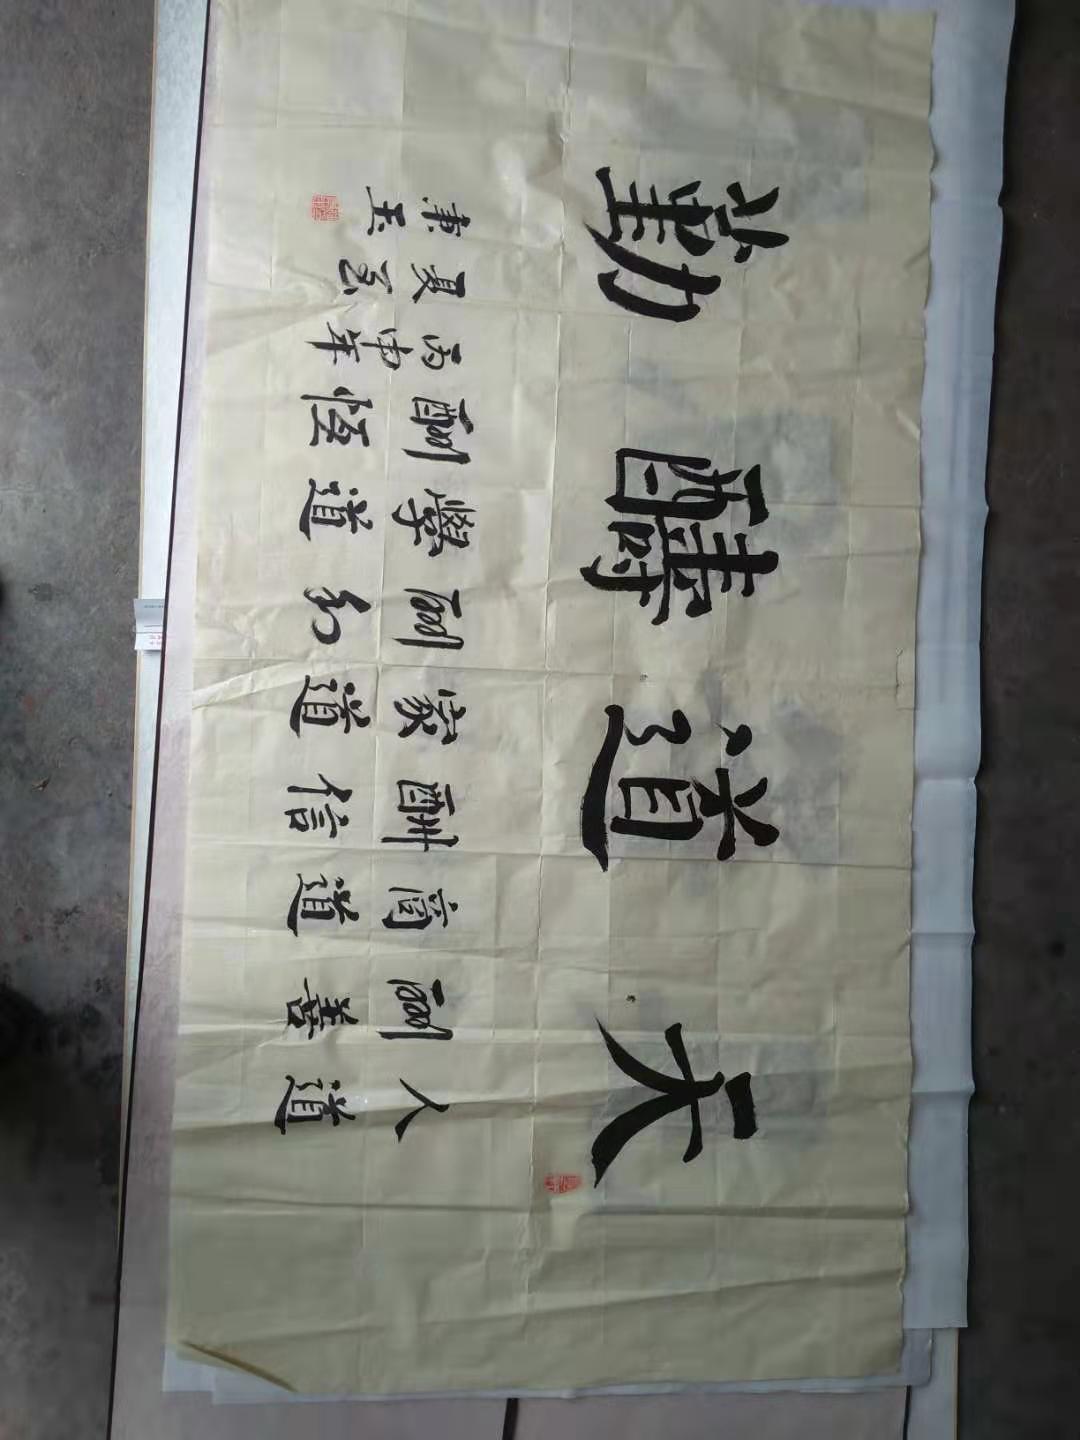 天道醻勤
人道
酬善
商道
酬信
家道
酬和
學道
酬恆
丙申年
夏